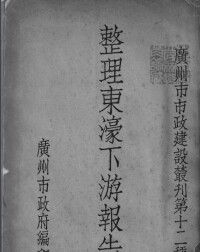 廣州市市政建設叢刊第十二種
整理東濠下游報告
廣州市政府編